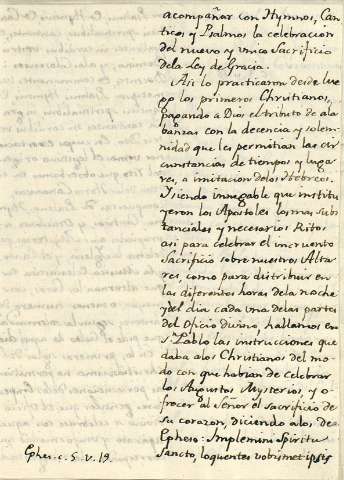 acompañar con Hymnos, Can
ticos y Psalmos la celebracion
del nuevo y unico Sacrificio
dela Ley de Gracia.
Asi lo practicaron desde lue
go los primeros Christianos,
pagando a Dios el tributo de ala
banzas con la decencia y solem
nidad que les permitian las cir
cunstancias de tiempos y luga
res, a imitacion delos Hebreos.
Y siendo innegable que institu
yeron los Apostoles las mas subs
tanciales y necesarios Ritos
asi para celebrar el incruento
Sacrificio sobre nuestros Alta
res, como para distribuir en
las diferentes horas dela noche
y del dia cada una delas partes
del Oficio divino, hallamos en
S. Pablo las instrucciones que
daba alos Christianos del mo
do con que habian de celebrar
los Augustos Mysterios, y o
frecer al Señor el sacrificio de
su corazon, diciendo alos de
Epheso: Implemini Spiritu
Sancto, loquentes vobismet ipsis
Ephes. c. 5. v. 19.